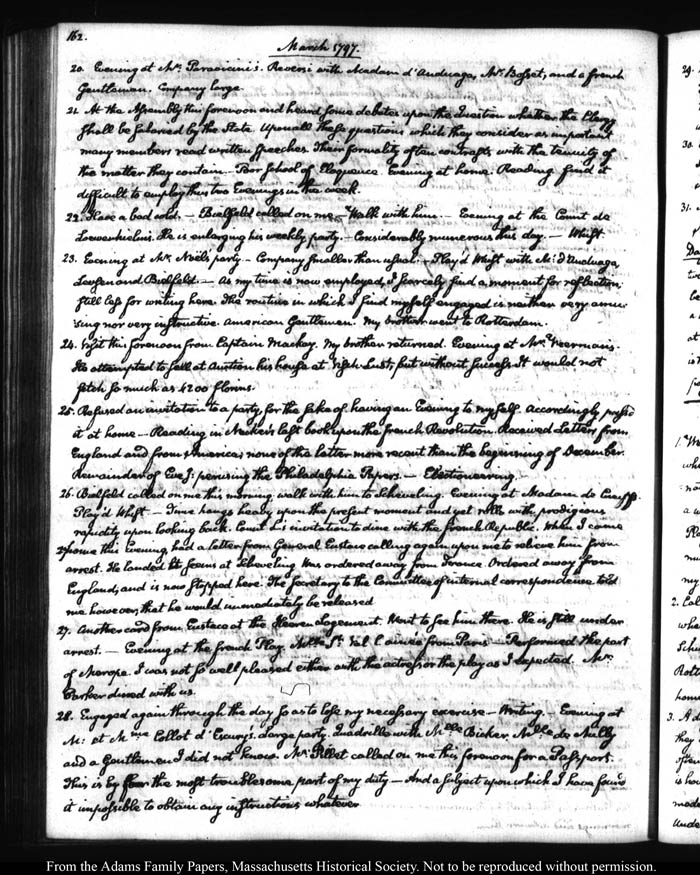 162.
March 1797.
20. Evening at Mr. Reversi with Madam d'Anduaga, Mr. Bosset, and a french
Gentleman. Company large.
21. At the Assembly this forenoon and heard some debates upon the Question whether the Clergy
shall be salaried by the State. Upon all these questions which they consider as important
many members read written speeches. Their formality often contrasts with the tenuity of
the matter they contain. Poor School of Eloquence. Evening at home. Reading. find it
difficult to employ thus two Evenings in the week.
22. Have a bad cold. — Bielfeld called on me — Walk with him. — Evening at the Count de
Loewenhielm's. He is enlarging his weekly party. — Considerably numerous this day. — Whist.
23. Evening at Mr. Noël's party — Company smaller than usual. — Play'd Whist with M: d'Anduaga,
and Bielfeld. — As my time is now employed, I scarcely find a moment for reflection,
still less for writing here. The routine in which I find myself engaged is neither very amu-
sing nor very instructive. American Gentlemen. My brother went to Rotterdam.
24. Visit this forenoon from Captain Mackay. My brother returned. Evening at Mr. Veerman's.
He attempted to sell at Auction his house at but without success. It would not
fetch so much as 4200 florins.
25. Refused an invitation to a party, for the sake of having an Evening to myself. Accordingly, pass'd
it at home. — Reading in Necker's last book upon the french Revolution. Received Letters from
England and from America; none of the latter more recent than the beginning of December.
Remainder of Eve.g: perusing the Philadelphia Papers. — Electioneering.
26. Bielfeld called on me this morning, walk with him to Scheveling. Evening at Madam de
Play'd Whist — Time hangs heavy upon the present moment and yet rolls with prodigious
rapidity upon looking back. Count L's invitation to dine with the French Republic. When I came
27. home this Evening, had a letter from General Eustace calling again upon me to relieve him from
arrest. He landed it seems at Scheveling. Was ordered away from France. Ordered away from
England, and is now stopped here. The Secretary to the Committee of internal correspondence told
me however, that he would immediately be released
27. Another card from Eustace at the Heeren Logement. Went to see him there. He is still under
arrest. — Evening at the french Play. Mlle. St. Val L'ainée from Paris — Performed the part
of Merope. I was not so well pleased either with the actress or the play as I expected. Mr.
Parker dined with us.
28. Engaged again through the day so as to lose my necessary exercise — Writing. — Evening at
M: et Mme Collot d'Escury's. Large party. Quadrille with Mlle Bicker, Mlle de Nully
and a Gentleman I did not know. Mr. Pillet called on me this forenoon for a Passport.
This is by far the most troublesome part of my duty — And a subject upon which I have found
it impossible to obtain any instructions whatever
From the Adams Family Papers, Massachusetts Historical Society. Not to be reproduced without permission.